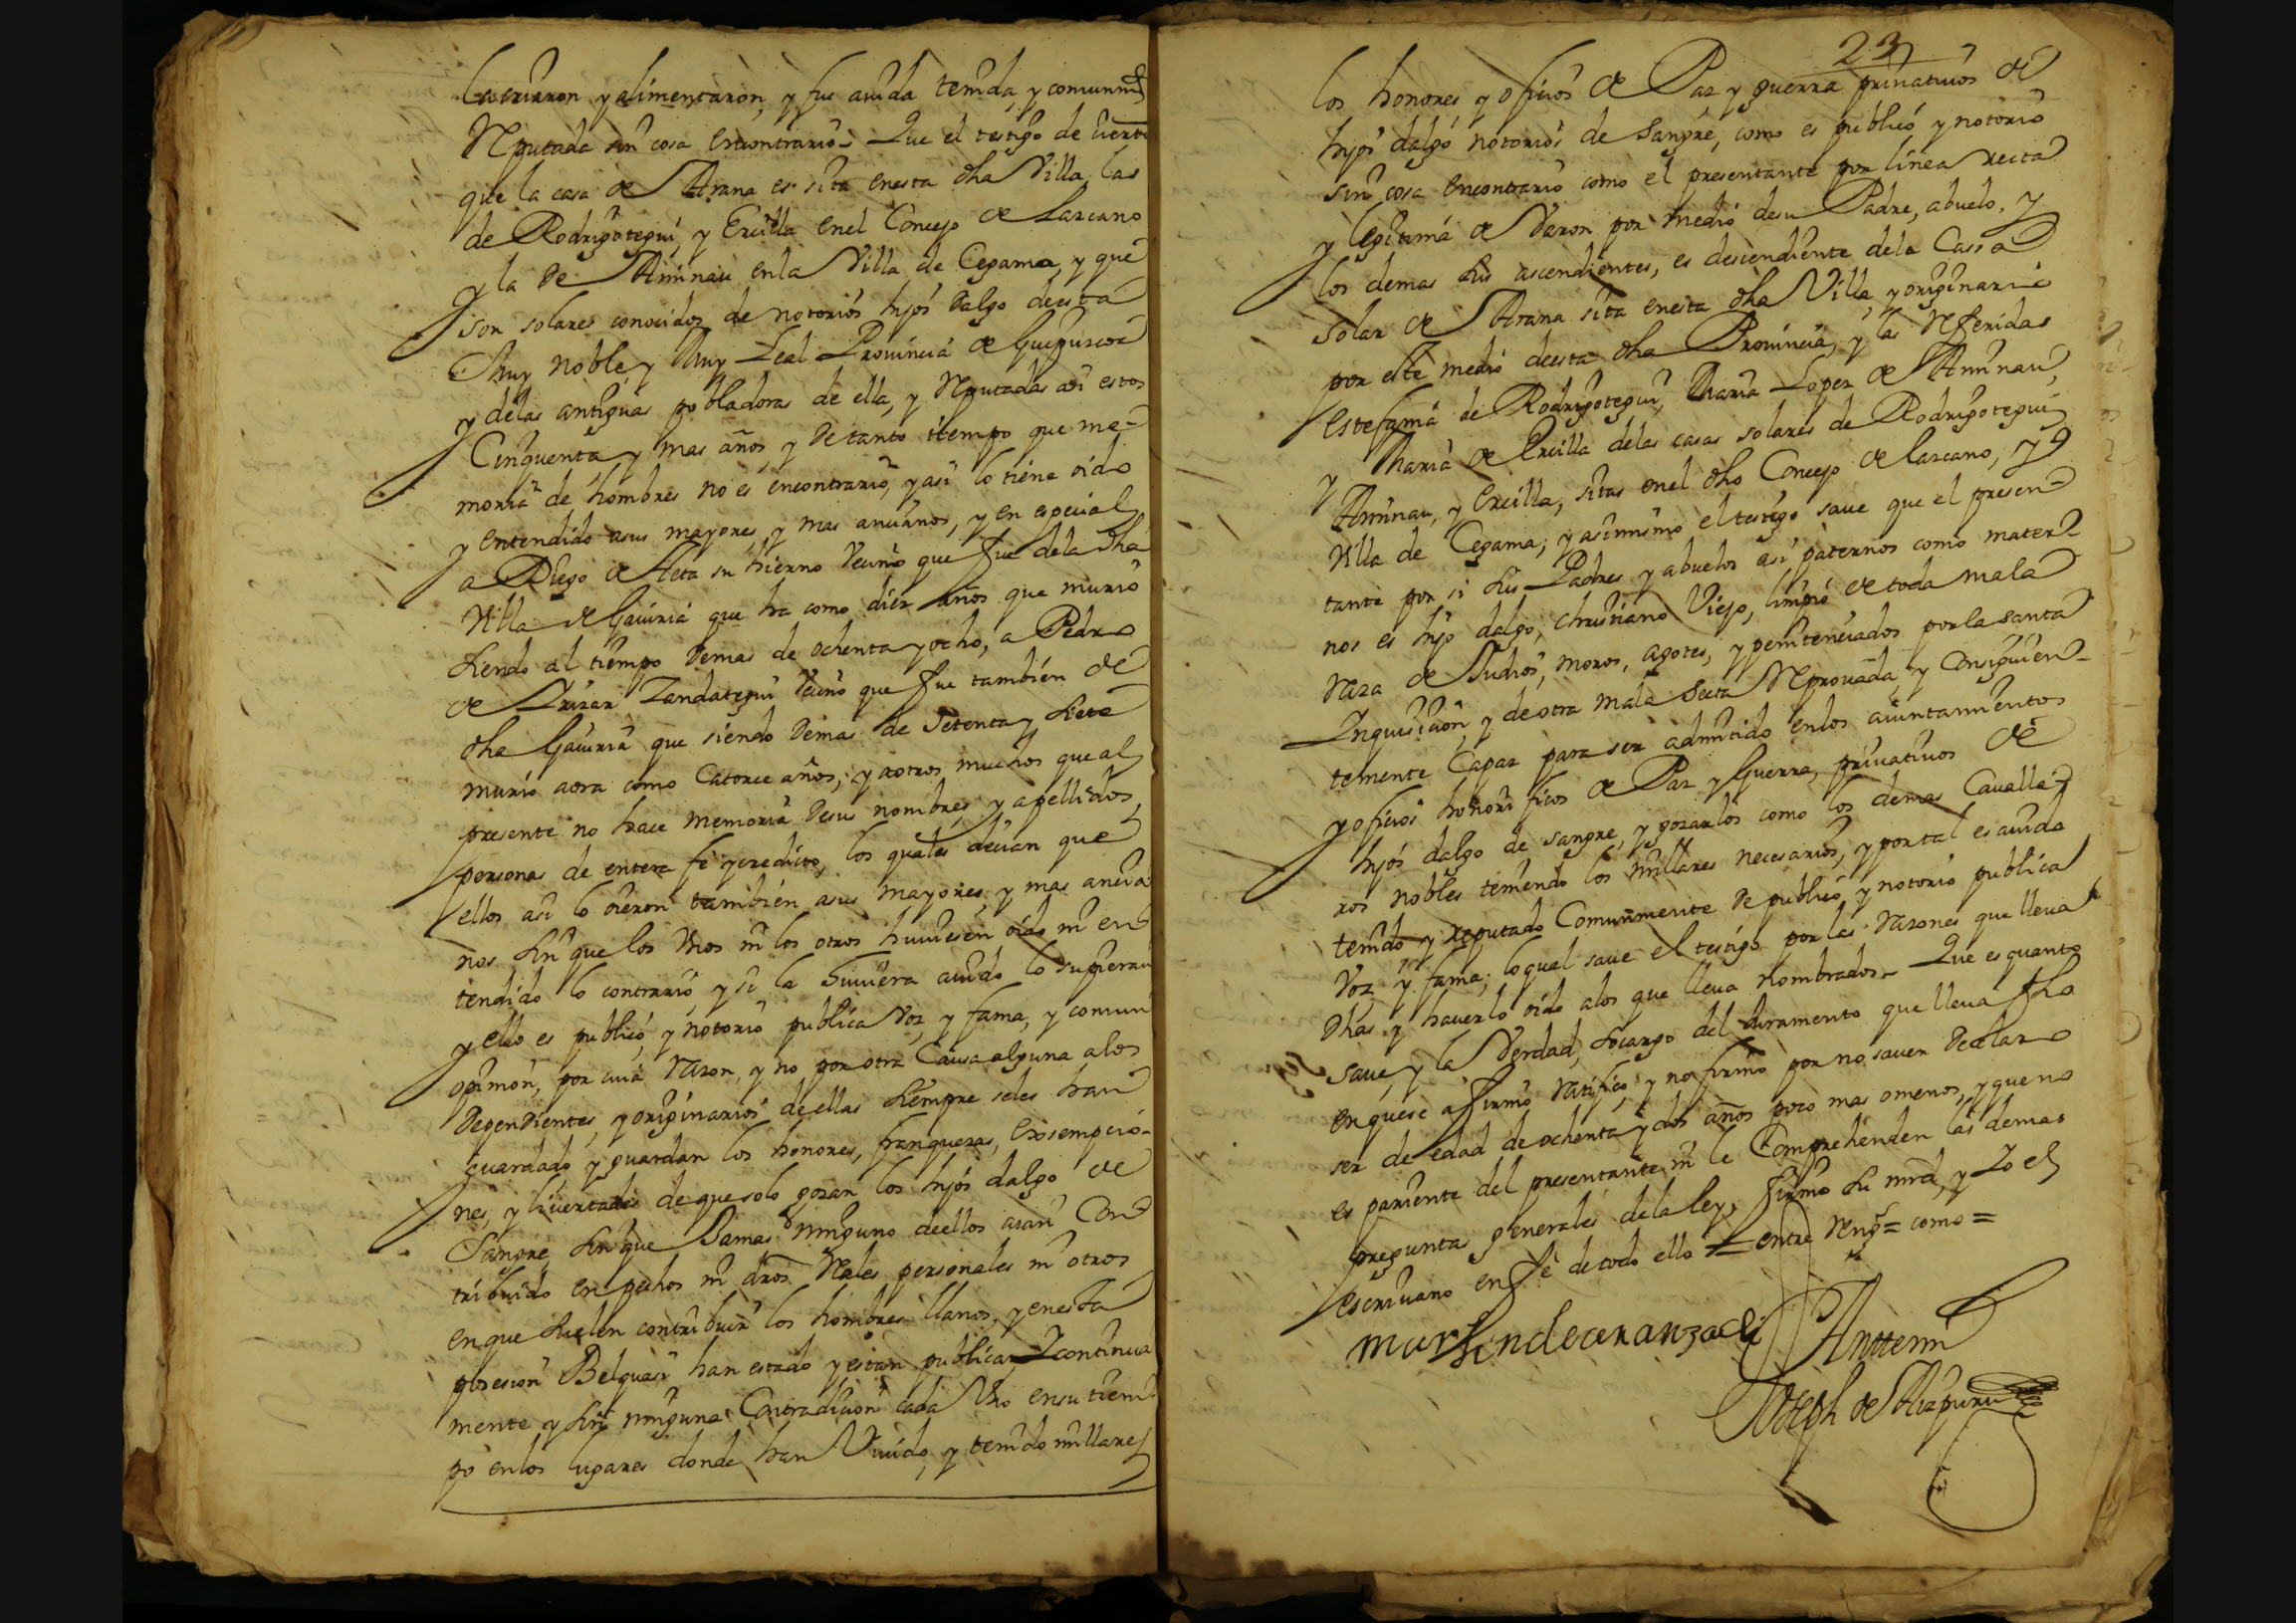 la criaron y alimentaron, y fue auida tenida, y comunmte
Reputada sin cosa encontrario. Que el testigo de cierto
que la casa de Arana es sita enesta dha Villa, las
de Rodrigotegui, y Ercilla enel Concejo de Lazcano
y la de Aminau enla Villa de Cegama, y que
son solares conocidos de notorios hijos dalgo deesta
Muy noble y Muy Leal Prouincia de Guipuzcoa
y delas antiguas pobladoras de ella, y Reputadas asi estos
Cinquenta y mas años, y de tanto itempo que me-
moria de hombres no es encontrario, y asi lo tiene oido
y entendido asus mayores, y mas ancianos, y en especial
a Diego de Aeta su hierno Vecino que fue dela dha
Villa de Gauiria que ha como diez años que murio
siendo al tiempo demas de ochenta y ocho, a Pedro
de Irizar Zandategui Vecino que fue tambien de
dha Gauiria que siendo demas de Setenta y siete
murio aora como Catorce años; y aotros muchos que al
presente no hace memoria desus nombres, y apellidos
personas de entera fe y credito, los quales decian que
ellos asi lo oieron tambien asus mayores, y mas ancia-
nos sin que los Vnos ni los otros huuiesen oido ni en-
tendido lo contrario, y si la huuiera auido lo supieran
y ello es publico, y notorio publica Voz, y fama, y comun
opinion, por cuia Razon, y no por otra Causa alguna alos
dependientes, y originarios deellas siempre seles han
guardado y guardan los honores, franquezas, Exsempcio-
nes, y liuertades deque solo gozan los hijos dalgo de
Sangre, sin que Jamas ninguno deellos aian Con-
tribuido en pechos ni dros Rales, personales ni otros
en que suelen contribuir los hombres llanos, y enesta
posesion Velquasi han estado y estan publica, Y continua
mente y sin ninguna Contradicion cada Vno ensu tiem-
po enlos lugares donde han Viuido, y tenido millares
23
los honores, y oficios de Paz y guerra priuatiuos de
hijos dalgo notorios de Sangre, como es publico y notorio
sin cosa encontrario como el presentante por linea recta
y legitima de Varon por medio desu Padre, abuelo, y
los demas sus ascendientes, es descendiente dela Cassa
solar de Arana sita enesta dha Villa, y originario
por este medio deesta dha Prouincia, y las Referidas
Estefania de Rodrigotegui, Maria Lopez de Aminau,
y Maria de Ercilla delas casas solares de Rodrigotegui
Aminau, y Ercilla, sitas enel dho Concejo de Lazcano, y
Villa de Cegama; y asimismo el testigo saue que el presen-
tante por si sus Padres y abuelos asi paternos como mater-
nos es hijo dalgo, christiano Viejo, limpio de toda mala
Raza de Judios, moros, agotes, y penitenciados por la santa
Inquisicion, y de otra mala Secta Reprouada, y Consiguien-
temente Capaz para ser admitido enlos aiuntamientos
y oficios honorificos de Paz y Guerra, priuatiuos de
hijos dalgo de sangre, y gozarlos como los demas Caualle-
ros nobles teniendo los millares necesarios, y por tal es auido
tenido y reputado Comunmente de publico, y notorio publica
Voz, y fama; lo qual saue el testigo por las Razones que lleua
dhas y hauerlo oido alos que lleua nombrados. Que es quanto
saue, y la Verdad, socargo del Juramento que lleua fho
en que se afirmo Ratifico, y no firmo por no sauer declaro
ser de edad de ochenta y dos años poco mas omenos, y que no
es pariente del presentante ni le Comprehenden las demas
preguntas generales dela ley, firmo su mrd, y Yo el
escriuano en fe de todo ello = entre reng = como =
martin de aranzadi Ante mi
Joseph de Aizpuru